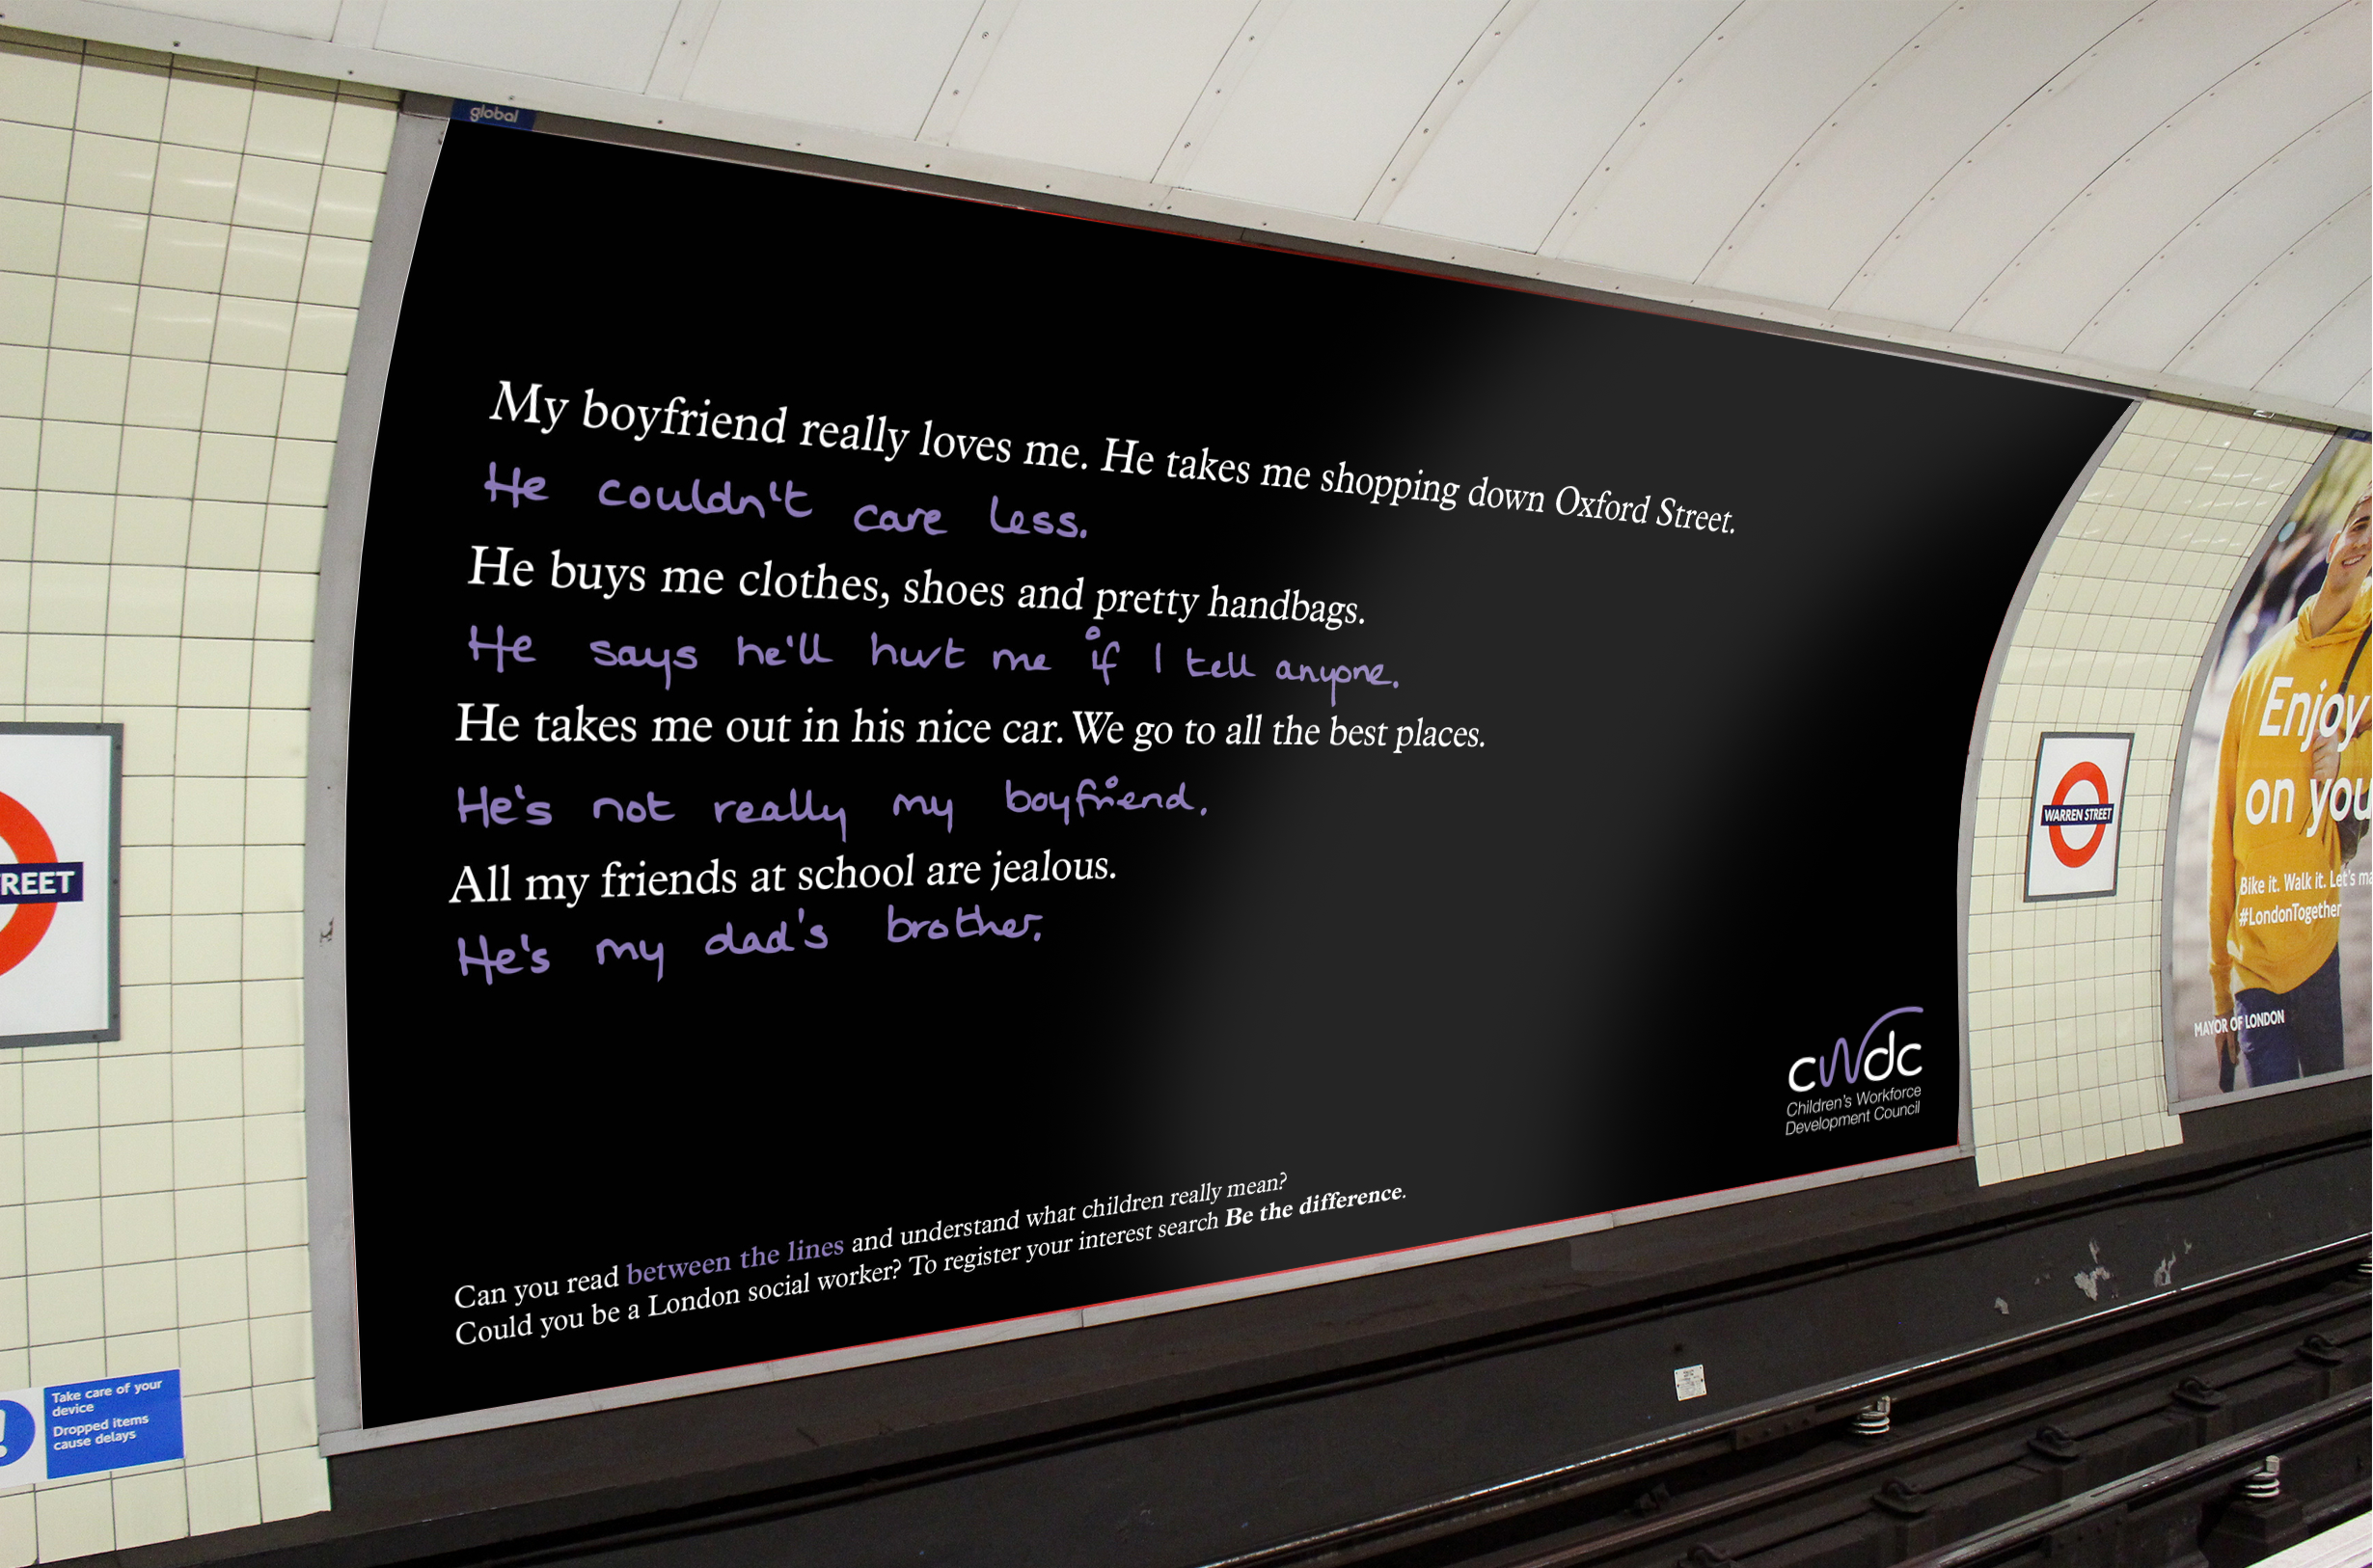 global
My boyfriend really loves me. He takes me shopping down Oxford Street.
He couldn't care less.
He buys me clothes, shoes and pretty handbags.
He says he'll hurt me if I tell anyone.
He takes me out in his nice car. We go to all the best places.
He's not really my boyfriend.
All my friends at school are jealous.
He's my dad's brother.
cwdc
Children's Workforce
Development Council
Can you read between the lines and understand what children really mean?
Could you be a London social worker? To register your interest search Be the difference.
REET
Take care of your
device
Dropped items
cause delays
WARREN STREET
Enjoy
on you
Bike it. Walk it. Let's ma
#LondonTogether
MAYOR OF LONDON